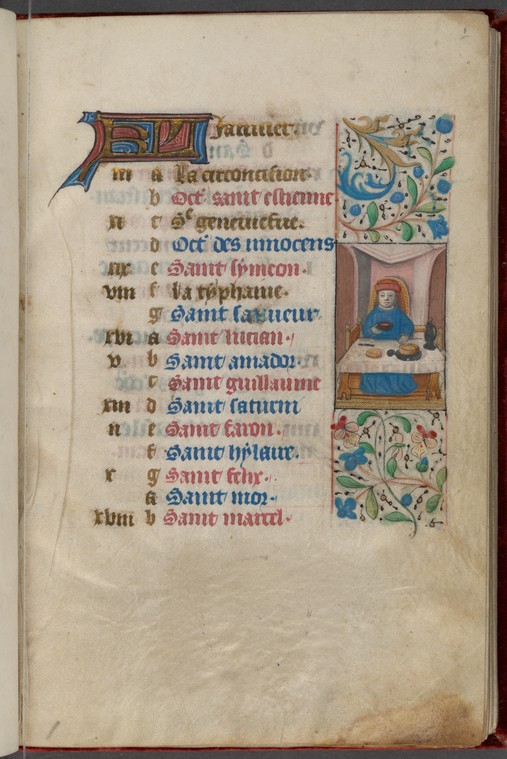 KL Januier
iii a La circoncision.
b Oct sainct estienne
xi c Sᵉ geneuiefue.
d Oct des innocens
xix e Sainct symeon.
viii f La typhaine.
g Sainct sauueur.
xvi a Sainct lucian.
v b Sainct amador.
c Sainct guillaume
xiii d Sainct saturni
ii e Sainct faron.
f Sainct hylaire.
x g Sainct felix.
a Sainct mor.
xviii b Sainct marcel.